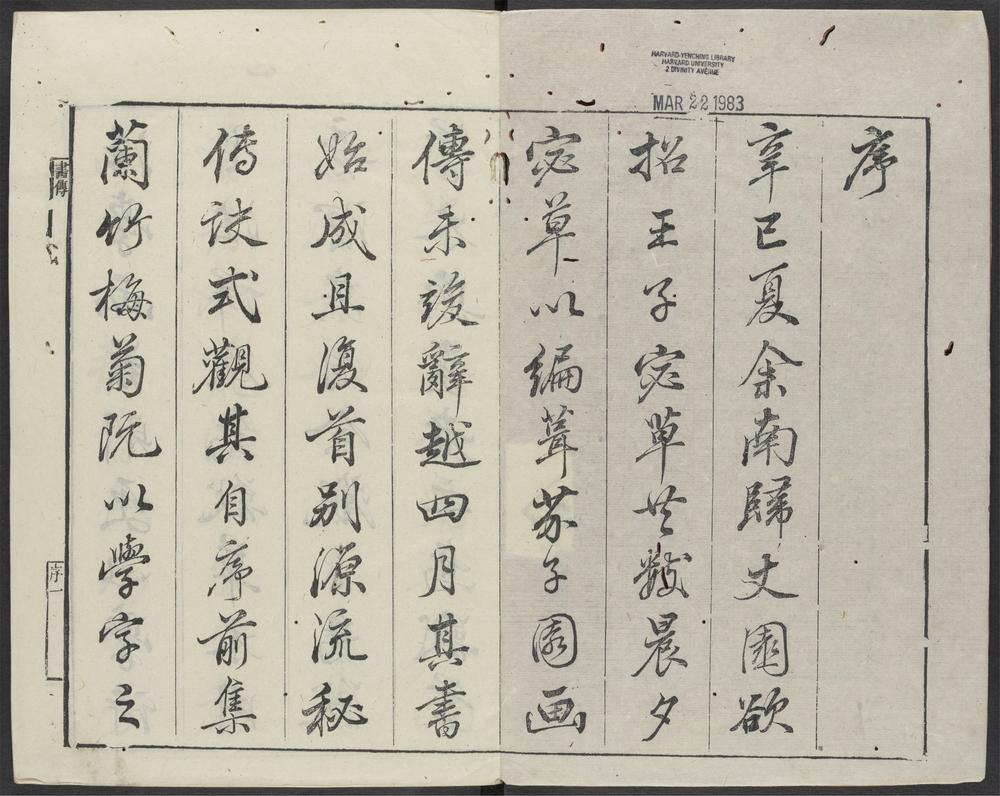 HARVARD-YENCHING LIBRARY
HARVARD UNIVERSITY
2 DIVINITY AVENUE
MAR 22 1983
序
辛巳夏余南歸丈園欲
招王子宓草共數晨夕
宓草以編葺芥子園画
傳未竣辭越四月其書
始成且復首別源流秘
傳訣式觀其自序前集
蘭竹梅菊既以學字之
書傳
序一